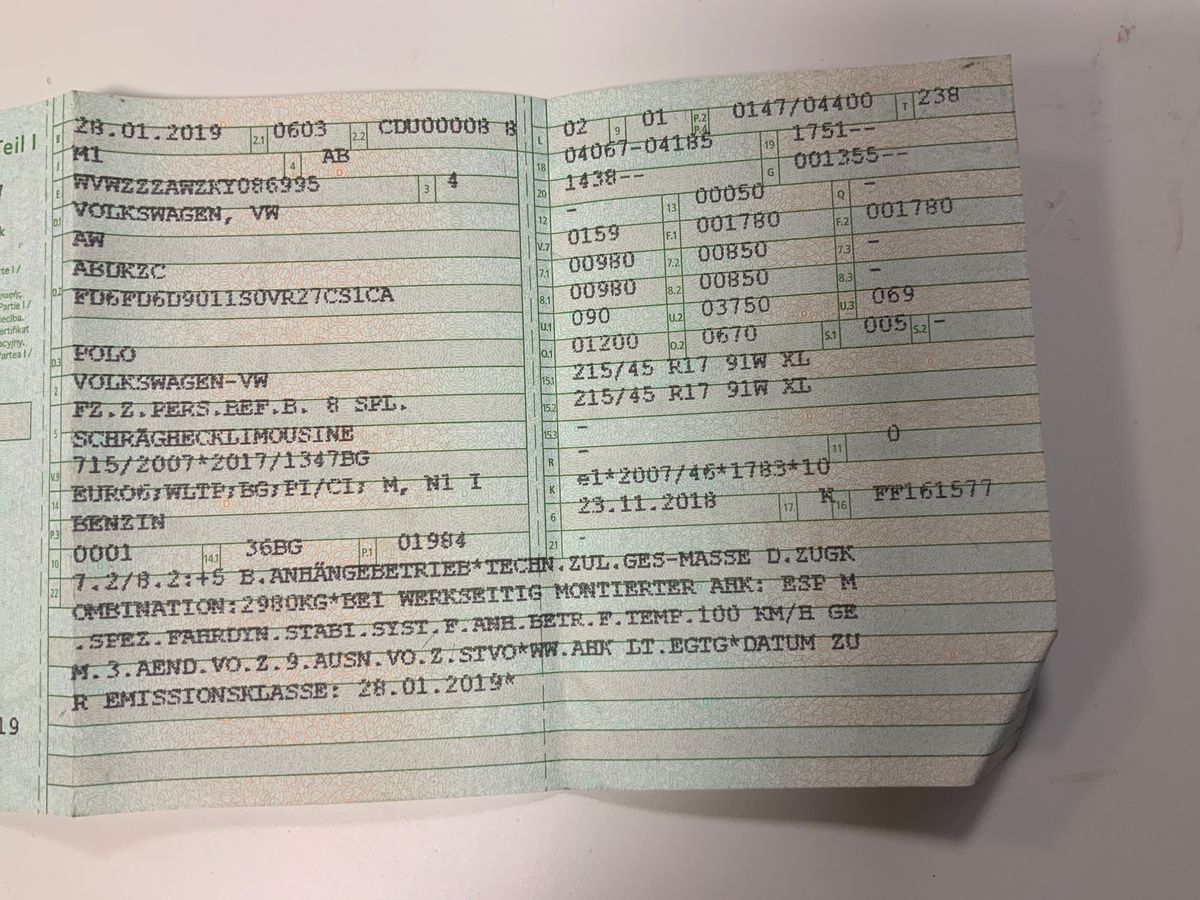 Teil I
B 28.01.2019 2.1 0603 2.2 CDU00008 8
J M1 4 AB
E WVWZZZAWZKY086995 3 4
D.1 VOLKSWAGEN, VW
AW
D.2 ABDKZC
FD6FD6D9011S0VR27CS1CA
D.3 POLO
2 VOLKSWAGEN-VW
5 FZ.Z.PERS.BEF.B. 8 SPL.
SCHRÄGHECKLIMOUSINE
V.9 715/2007*2017/1347BG
14 EURO6;WLTP;BG;PI/CI; M, N1 I
P.3 BENZIN
10 0001 14.1 36BG P.1 01984
L 02 9 01 P.2 P.4 0147/04400 T 238
18 04067-04185 19 1751--
20 1438-- G 001355--
12 - 13 00050 Q -
V.7 0159 F.1 001780 F.2 001780
7.1 00980 7.2 00850 7.3 -
8.1 00980 8.2 00850 8.3 -
U.1 090 U.2 03750 U.3 069
O.1 01200 O.2 0670 S.1 005 S.2 -
15.1 215/45 R17 91W XL
15.2 215/45 R17 91W XL
15.3 -
R - 11 0
K e1*2007/46*1783*10
6 23.11.2018 17 K 16 FF161577
21 -
22 7.2/8.2:+5 B.ANHÄNGEBETRIEB*TECHN.ZUL.GES-MASSE D.ZUGK
OMBINATION:2980KG*BEI WERKSEITIG MONTIERTER AHK: ESP M
.SPEZ.FAHRDYN.STABI.SYST.F.ANH.BETR.F.TEMP.100 KM/H GE
M.3.AEND.VO.Z.9.AUSN.VO.Z.STVO*WW.AHK LT.EGTG*DATUM ZU
R EMISSIONSKLASSE: 28.01.2019*
19